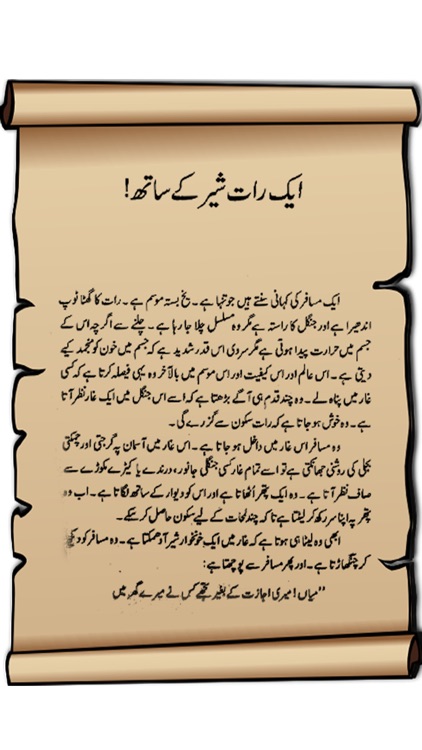 ایک رات شیر کے ساتھ!
ایک مسافر کی کہانی سنتے ہیں جو تنہا ہے۔ یخ بستہ موسم ہے۔ رات کا گھٹا ٹوپ
اندھیرا ہے اور جنگل کا راستہ ہے مگر وہ مسلسل چلا جا رہا ہے۔ چلنے سے اگرچہ اس کے
جسم میں حرارت پیدا ہوتی ہے مگر سردی اس قدر شدید ہے کہ جسم میں خون کو منجمد کیے
دیتی ہے۔ اس عالم اور اس کیفیت اور اس موسم میں بالآخر وہ یہی فیصلہ کرتا ہے کہ کسی
غار میں پناہ لے۔ وہ چند قدم ہی آگے بڑھتا ہے کہ اسے اس جنگل میں ایک غار نظر آتا
ہے۔ وہ خوش ہو جاتا ہے کہ رات سکون سے گزرے گی۔
وہ مسافر اس غار میں داخل ہو جاتا ہے۔ اس غار میں آسمان پہ گرجتی اور چمکتی
بجلی کی روشنی جھانکتی ہے تو اسے تمام غار کسی جنگلی جانور، درندے یا کیڑے مکوڑے سے
صاف نظر آتا ہے۔ وہ ایک پتھر اُٹھاتا ہے اور اس کو دیوار کے ساتھ لگاتا ہے۔ اب وہ
پتھر پہ اپنا سر رکھ کر لیٹتا ہے تاکہ چند لمحات کے لیے سکون حاصل کر سکے۔
ابھی وہ لیٹا ہی ہوتا ہے کہ غار میں ایک خونخوار شیر آ دھمکتا ہے۔ وہ مسافر کو دیکھ
کر چنگھاڑتا ہے۔ اور پھر مسافر سے پوچھتا ہے:
”میاں! میری اجازت کے بغیر تجھے کس نے میرے گھر میں